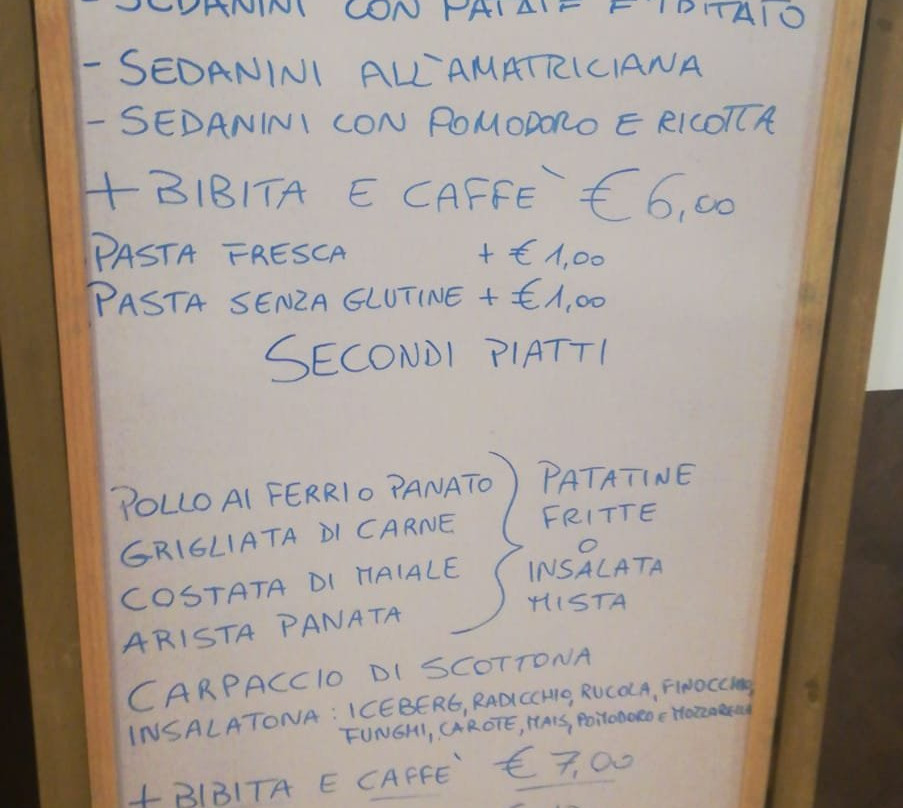 - SEDANINI CON PATATE E
- SEDANINI ALL'AMATRICIANA
- SEDANINI CON POMODORO E RICOTTA
+ BIBITA E CAFFE` € 6,00
PASTA FRESCA + € 1,00
PASTA SENZA GLUTINE + € 1,00
SECONDI PIATTI
POLLO AI FERRI O PANATO
GRIGLIATA DI CARNE
COSTATA DI MAIALE
ARISTA PANATA
PATATINE
FRITTE
O
INSALATA
MISTA
CARPACCIO DI SCOTTONA
INSALATONA: ICEBERG, RADICCHIO, RUCOLA, FINOCCHIO,
FUNGHI, CAROTE, MAIS, POMODORO E MOZZARELLA
+ BIBITA E CAFFE` € 7,00